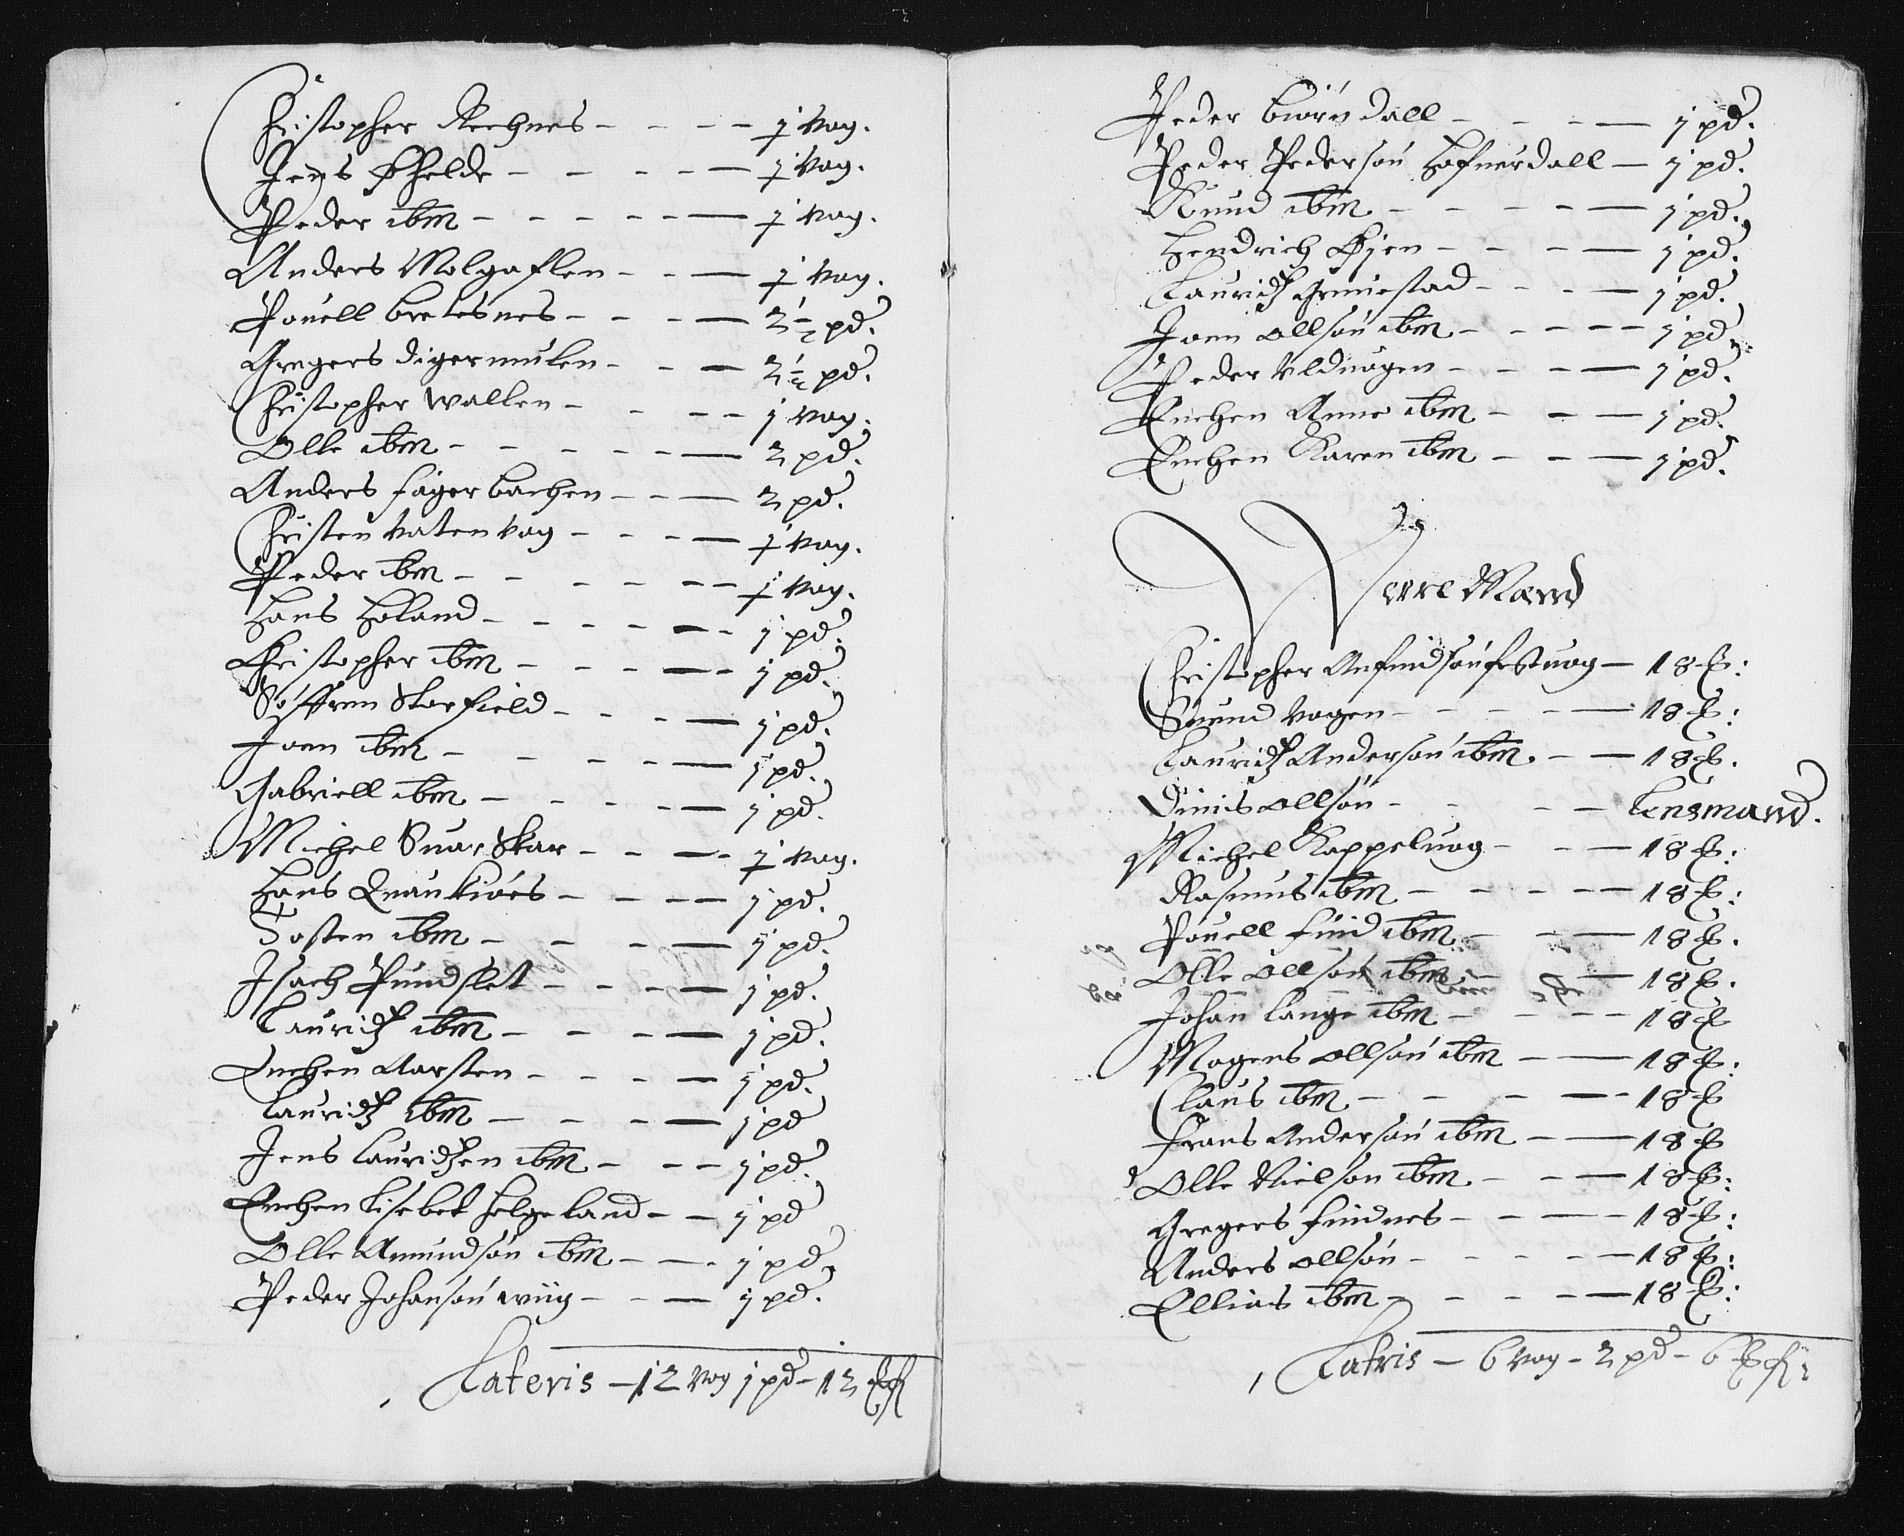 Christopher Rechnes - - - - 1 vog.
Jens Ehelde - - - - 1 vog.
Peder ibm - - - - - 1 vog.
Anders Molgaflen - - - 1 vog.
Pouell bretesnes - - - - 2½ pd.
Gregers digermulen - - - 2½ pd.
Christopher wallen - - - - 1 vog.
Olle ibm - - - - - 2 pd.
Anders fagerbachen - - - 2 pd.
Christen vatenvog - - - - 1 vog.
Peder ibm - - - - - 1 vog.
Hans Holand - - - - - 1 pd.
Christopher ibm - - - - 1 pd.
Søffren Skarfield - - - - 1 pd.
Joen ibm - - - - - 1 pd.
Gabriell ibm - - - - - 1 pd.
Michel Suar Skar - - - - 1 vog.
Hans Quankioes - - - - 1 pd.
Tosten ibm - - - - 1 pd.
Isach Pundslet - - - - 1 pd.
Lauridtz ibm - - - - 1 pd.
Enchen Aarsten - - - - 1 pd.
Lauridtz ibm - - - - 1 pd
Jens Lauridtzen ibm - - - 1 pd.
Enchen Lisebet helgeland - - 1 pd
Olle Amundsøn ibm - - - 1 pd.
Peder Johansøn wiig - - - 1 pd.
Lateris - 12 vog 1 pd - 12 ℔ f
Peder biørndall - - - - 1 pd.
Peder Pedersøn Hofnerdall - 1 pd.
Knud ibm - - - - - 1 pd.
Hendrich Øjen - - - - 1 pd.
Lauridtz Grimestad - - - - 1 pd.
Joen Ollsøn ibm - - - - - 1 pd.
Peder Uldvogen - - - - 1 pd.
Enchen Anne ibm - - - 1 pd.
Enchen Karen ibm - - - 1 pd.
Vorre Mænd
Christopher Anfindsøn festvog - 18 ℔:
Suend vogen - - - - - 18 ℔:
Lauridtz Andersøn ibm - - 18 ℔.
Dinis Ollsøn - - - - Lensmand.
Michel Kappeluog - - - 18 ℔:
Rasmus ibm - - - - - 18 ℔:
Pouell find ibm - - - 18 ℔.
Olle Ollsøn ibm - - - 18 ℔.
Johan Lange ibm - - - - 18 ℔
Mogens Ollsøn ibm - - 18 ℔:
Claus ibm - - - - - 18 ℔
Frans Andersøn ibm - - 18 ℔
Olle Nielsøn ibm - - - 18 ℔:
Gregers findnes - - - - 18 ℔:
Anders Ollsøn - - - - - 18 ℔:
Ellias ibm - - - - - 18 ℔:
Latris - 6 vog - 2 pd - 6 ℔ f: